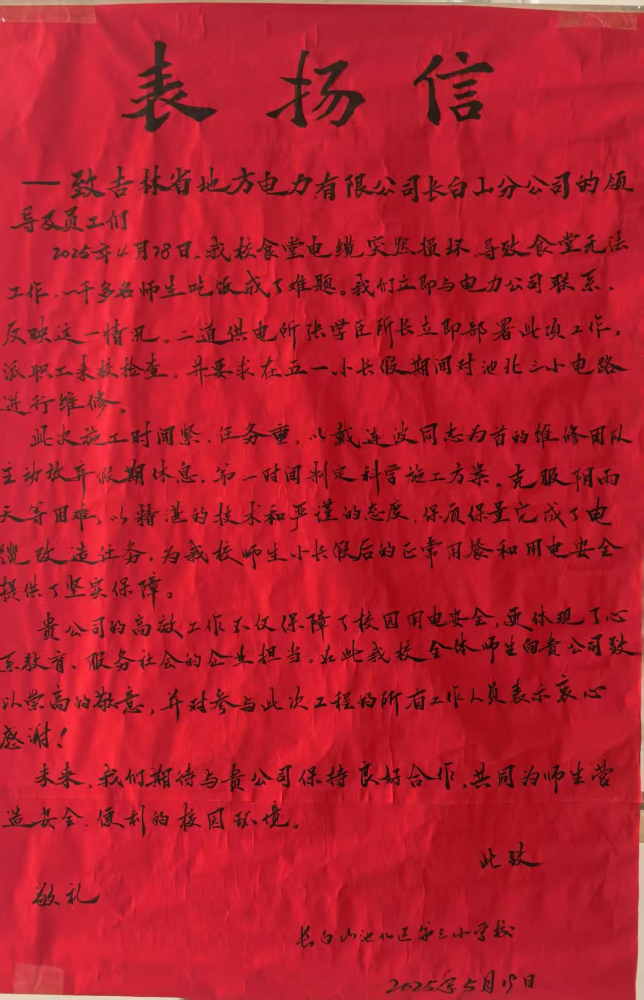 表扬信
——致吉林省地方电力有限公司长白山分公司的领
导及员工们
2025年4月28日,我校食堂电缆突然损坏,导致食堂无法
工作,一千多名师生吃饭成了难题。我们立即与电力公司联系、
反映这一情况。二道供电所张学臣所长立即部署此项工作,
派职工来校检查,并要求在五一小长假期间对池北三小电路
进行维修。
此次施工时间紧、任务重,以戴连波同志为首的维修团队
主动放弃假期休息,第一时间制定科学施工方案。克服阴雨
天等困难,以精湛的技术和严谨的态度,保质保量完成了电
缆改造任务,为我校师生小长假后的正常用餐和用电安全
提供了坚实保障。
贵公司的高效工作不仅保障了校园用电安全,更体现了心
系教育、服务社会的企业担当。在此我校全体师生向贵公司致
以崇高的敬意,并对参与此次工程的所有工作人员表示衷心
感谢!
未来,我们期待与贵公司保持良好合作,共同为师生营
造安全、便利的校园环境。
此致
敬礼
长白山池北区第三小学校
2025年5月19日